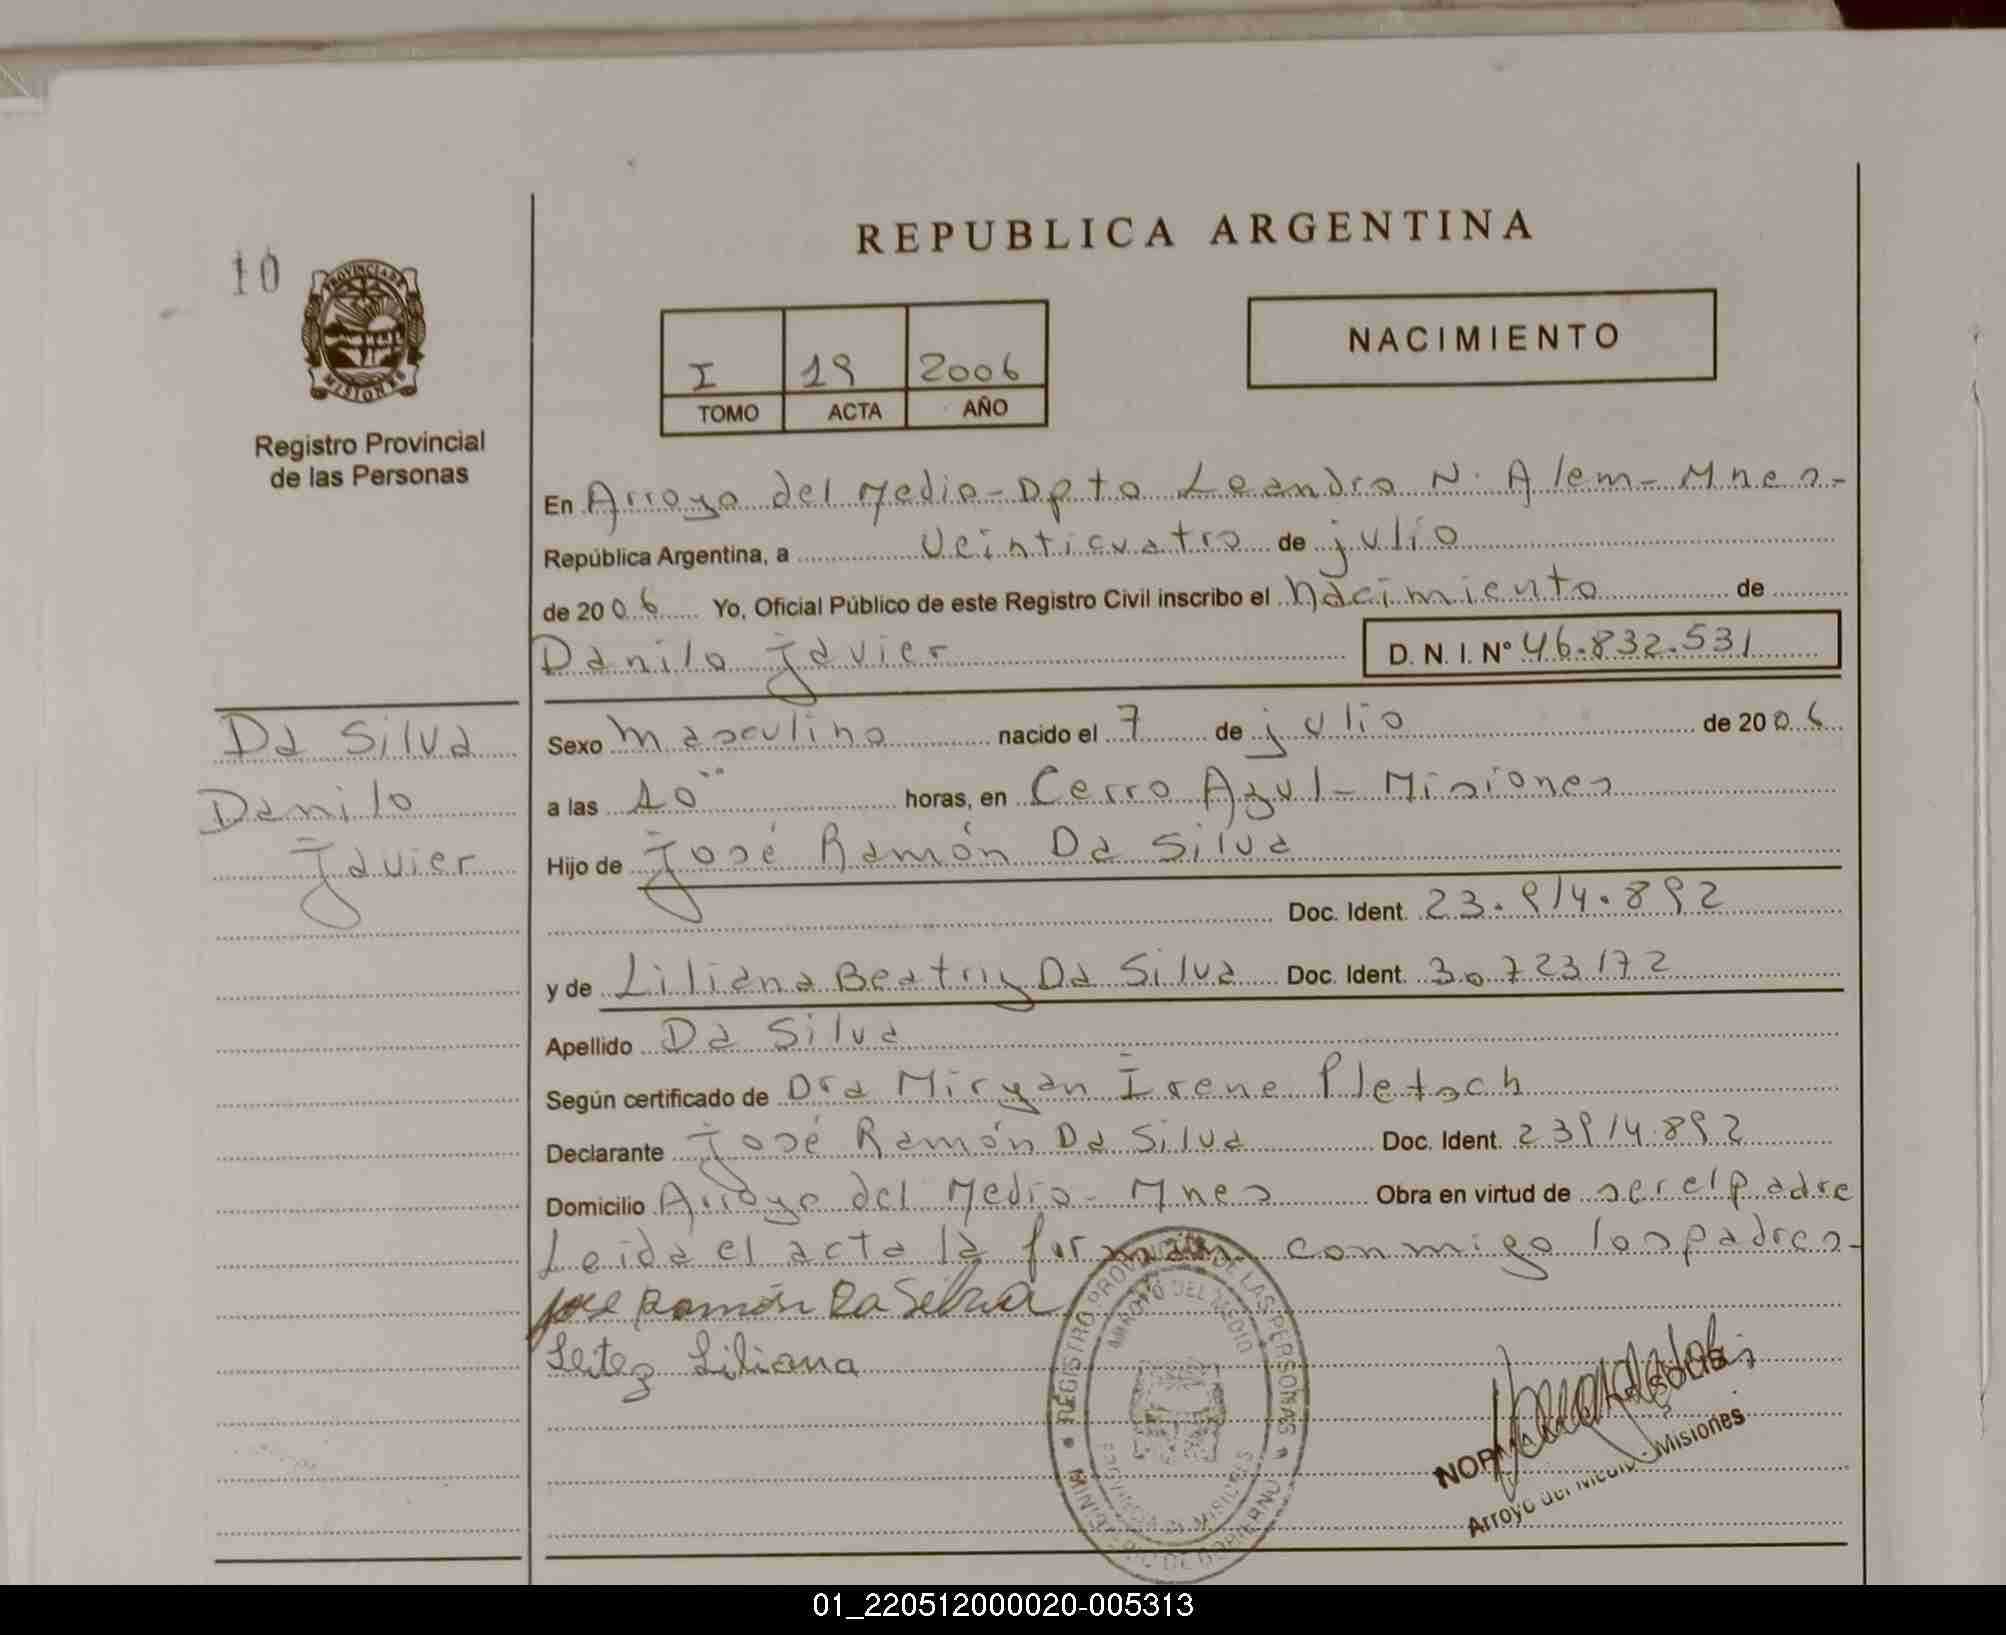 REPUBLICA ARGENTINA
10
PROVINCIA DE
MISIONES
Registro Provincial
de las Personas
I 19 2006
TOMO ACTA AÑO
NACIMIENTO
En Arroyo del Medio - Dpto Leandro N. Alem - Mnes -
República Argentina, a veinticuatro de julio
de 2006 Yo, Oficial Público de este Registro Civil inscribo el nacimiento de
Danilo Javier D. N. I. Nº 46.832.531
Da Silva
Danilo
Javier
Sexo masculino nacido el 7 de julio de 2006
a las 10 horas, en Cerro Azul - Misiones
Hijo de José Ramón Da Silva
Doc. Ident. 23.914.892
y de Liliana Beatriz Da Silva Doc. Ident. 30.723172
Apellido Da Silva
Según certificado de Dra Miryan Irene Pletsch
Declarante José Ramón Da Silva Doc. Ident. 23914.892
Domicilio Arroyo del Medio - Mnes Obra en virtud de ser el padre
Leida el acta la firman conmigo los padres -
Jose Ramón Da Silva
Leitez Liliana
REGISTRO PROVINCIAL DE LAS PERSONAS
ARROYO DEL MEDIO
PROVINCIA DE MISIONES
MINISTERIO DE GOBIERNO
Arroyo del Medio - Misiones
01_220512000020-005313